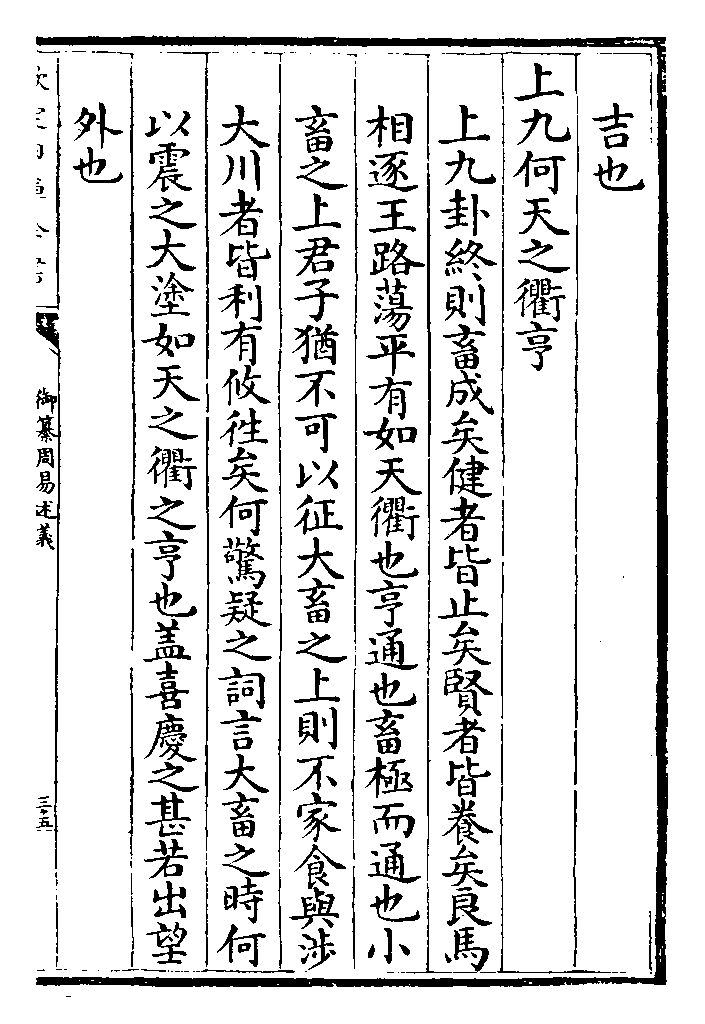 吉也
上九何天之衢亨
上九卦終則畜成矣健者皆止矣賢者皆養矣良馬
相逐王路蕩平有如天衢也亨通也畜極而通也小
畜之上君子猶不可以征大畜之上則不家食與涉
大川者皆利有攸徃矣何驚疑之詞言大畜之時何
以震之大塗如天之衢之亨也盖喜慶之甚若出望
外也
御纂周易述義
三五